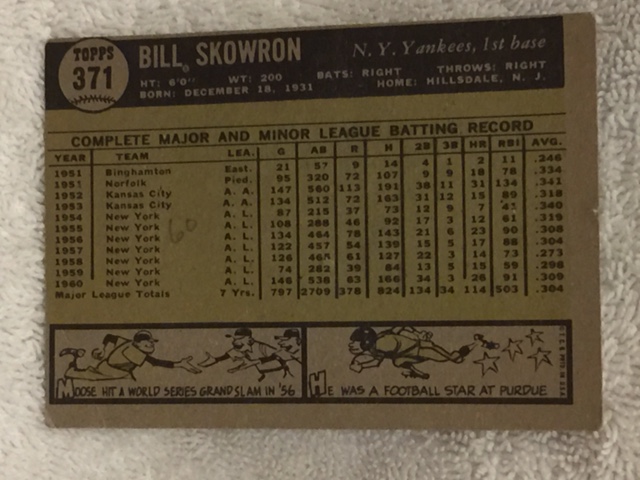 TOPPS
371
BILL SKOWRON
N. Y. Yankees, 1st base
HT: 6'0" WT: 200 BATS: RIGHT THROWS: RIGHT
BORN: DECEMBER 18, 1931 HOME: HILLSDALE, N. J.
COMPLETE MAJOR AND MINOR LEAGUE BATTING RECORD
YEAR TEAM LEA. G AB R H 2B 3B HR RBI AVG.
1951 Binghamton East. 21 57 9 14 4 1 2 11 .246
1951 Norfolk Pied. 95 320 72 107 9 9 18 78 .334
1952 Kansas City A. A. 147 560 113 191 38 11 31 134 .341
1953 Kansas City A. A. 134 512 72 163 31 12 15 89 .318
1954 New York A. L. 87 215 37 73 12 9 7 .340
1955 New York A. L. 108 288 46 92 17 3 12 61 .319
1956 New York A. L. 134 464 78 143 21 6 23 90 .308
1957 New York A. L. 122 457 54 139 15 5 17 88 .304
1958 New York A. L. 126 61 127 22 3 14 73 .273
1959 New York A. L. 74 282 39 84 13 5 15 59 .298
1960 New York A. L. 146 538 63 166 34 3 26 91 .309
Major League Totals 7 Yrs. 797 2709 378 824 134 34 114 503 .304
60
MOOSE HIT A WORLD SERIES GRAND SLAM IN '56
HE WAS A FOOTBALL STAR AT PURDUE